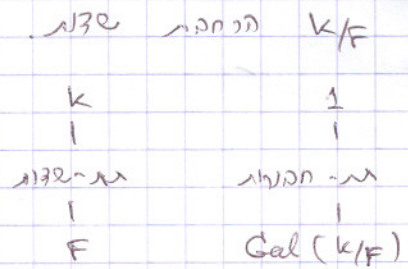 K/F הרחבת שדות.
K 1
| |
תת-שדות תת-חבורות
| |
F Gal(K/F)